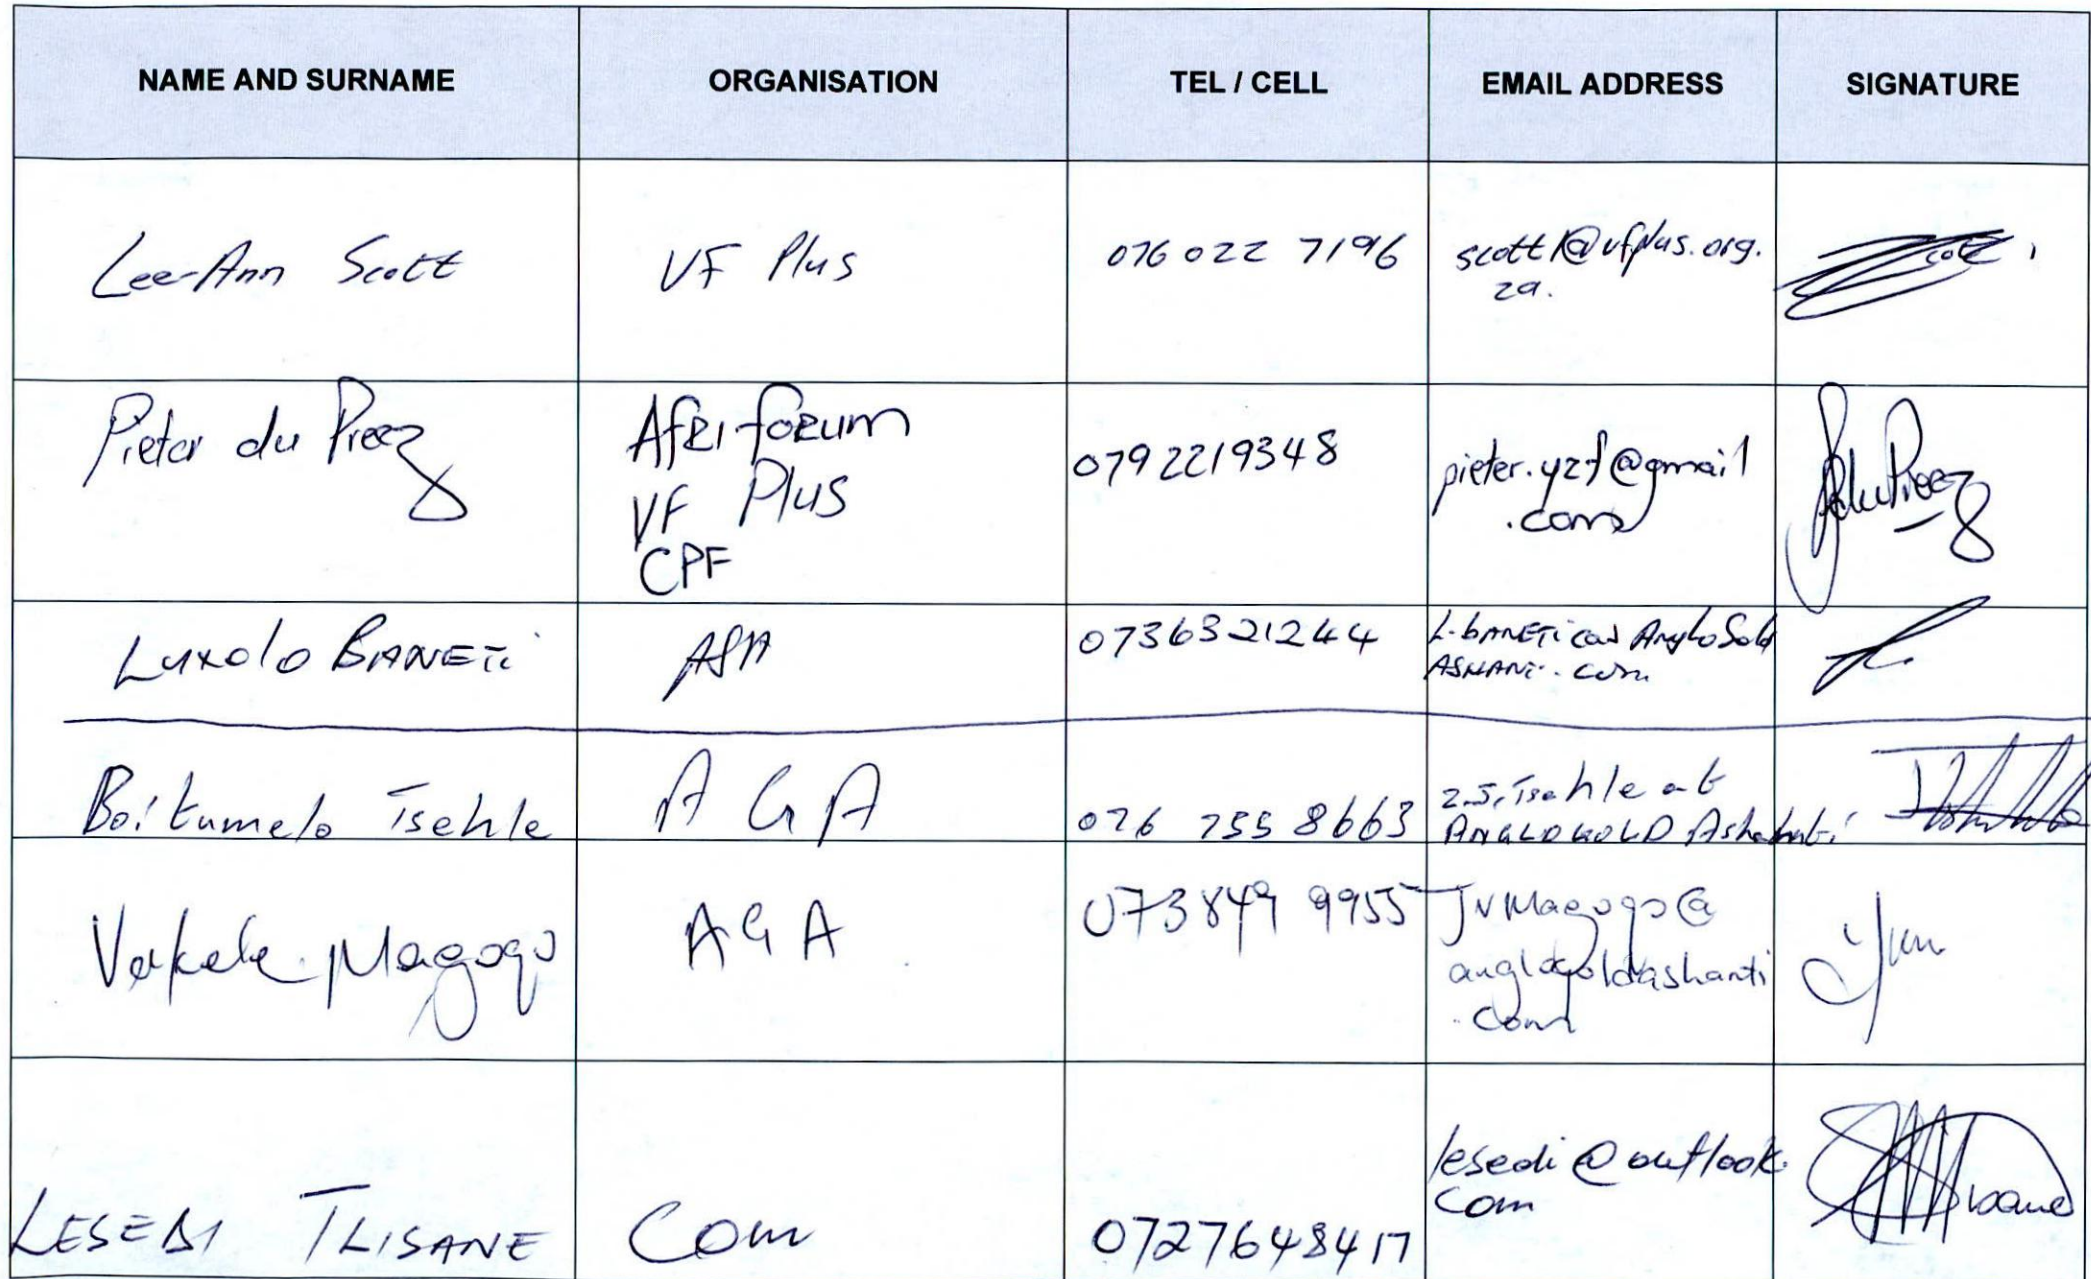 NAME AND SURNAME ORGANISATION TEL / CELL EMAIL ADDRESS SIGNATURE
Lee-Ann Scott VF Plus 076 022 7196 scottl@vfplus.org.
za.
Pieter du Preez AfriForum 0792219348 pieter.yzf@gmail
VF Plus .com
CPF
Luxolo BANETi 0736321244
ASHANTi.com
Boitumelo Tsehle AGA 076 755 8663
ANGLOGOLD Ashanti
Magogo AGA 073 849 9955 JVMagogo@
anglogoldashanti
.com
LESEDI TLISANE Com 0727648417 lesedi@outlook.
com